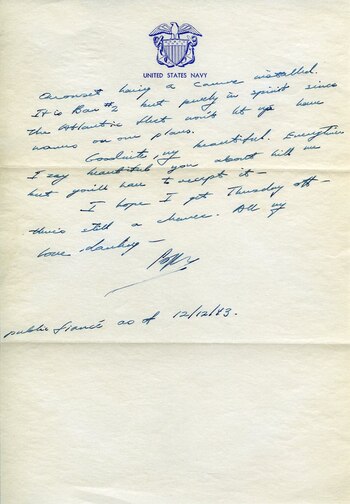 UNITED STATES NAVY
Quonset having a camera installed.
It is Bar #2 but purely in spirit since
the Atlantic fleet won't let us have
names on our planes.
Goodnite, my beautiful. Everytime
I say beautiful you about kill me
but you'll have to accept it —
I hope I get Thursday off —
there's still a chance. All my
love darling —
Poppy
public fiancé as of 12/12/43.